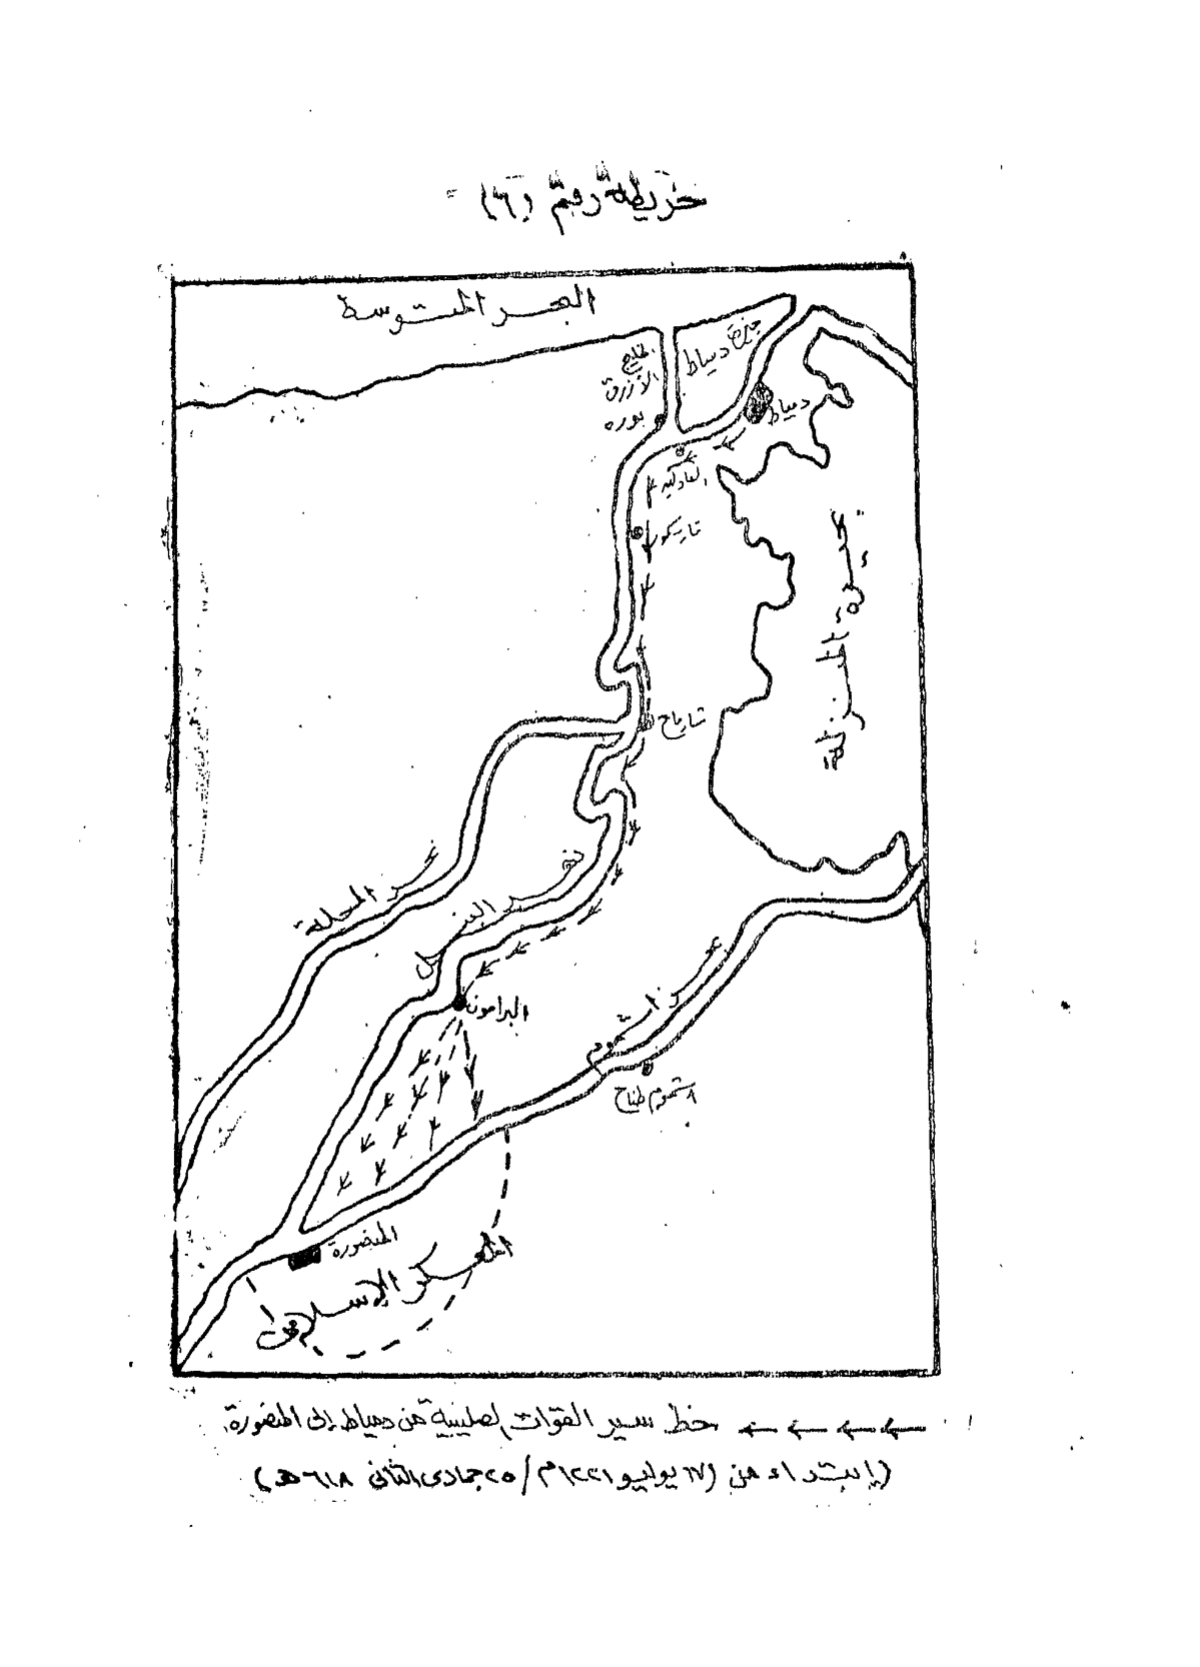 خريطة رقم (٦)
البحر المتوسط
جيزة دمياط
الخليج
الأزرق
بوره
دمياط
العادلية
فارسكور
بحيرة المنزلة
شارمساح
بحر المحلة
نهر النيل
البرامون
بحر اشموم
اشموم طناح
المنصورة
المعسكر الإسلامى
خط سير القوات الصليبية من دمياط إلى المنصورة
(إبتداء من (١٧ يوليو ١٢٢١م / ٢٥ جمادى الثانى ٦١٨هـ)